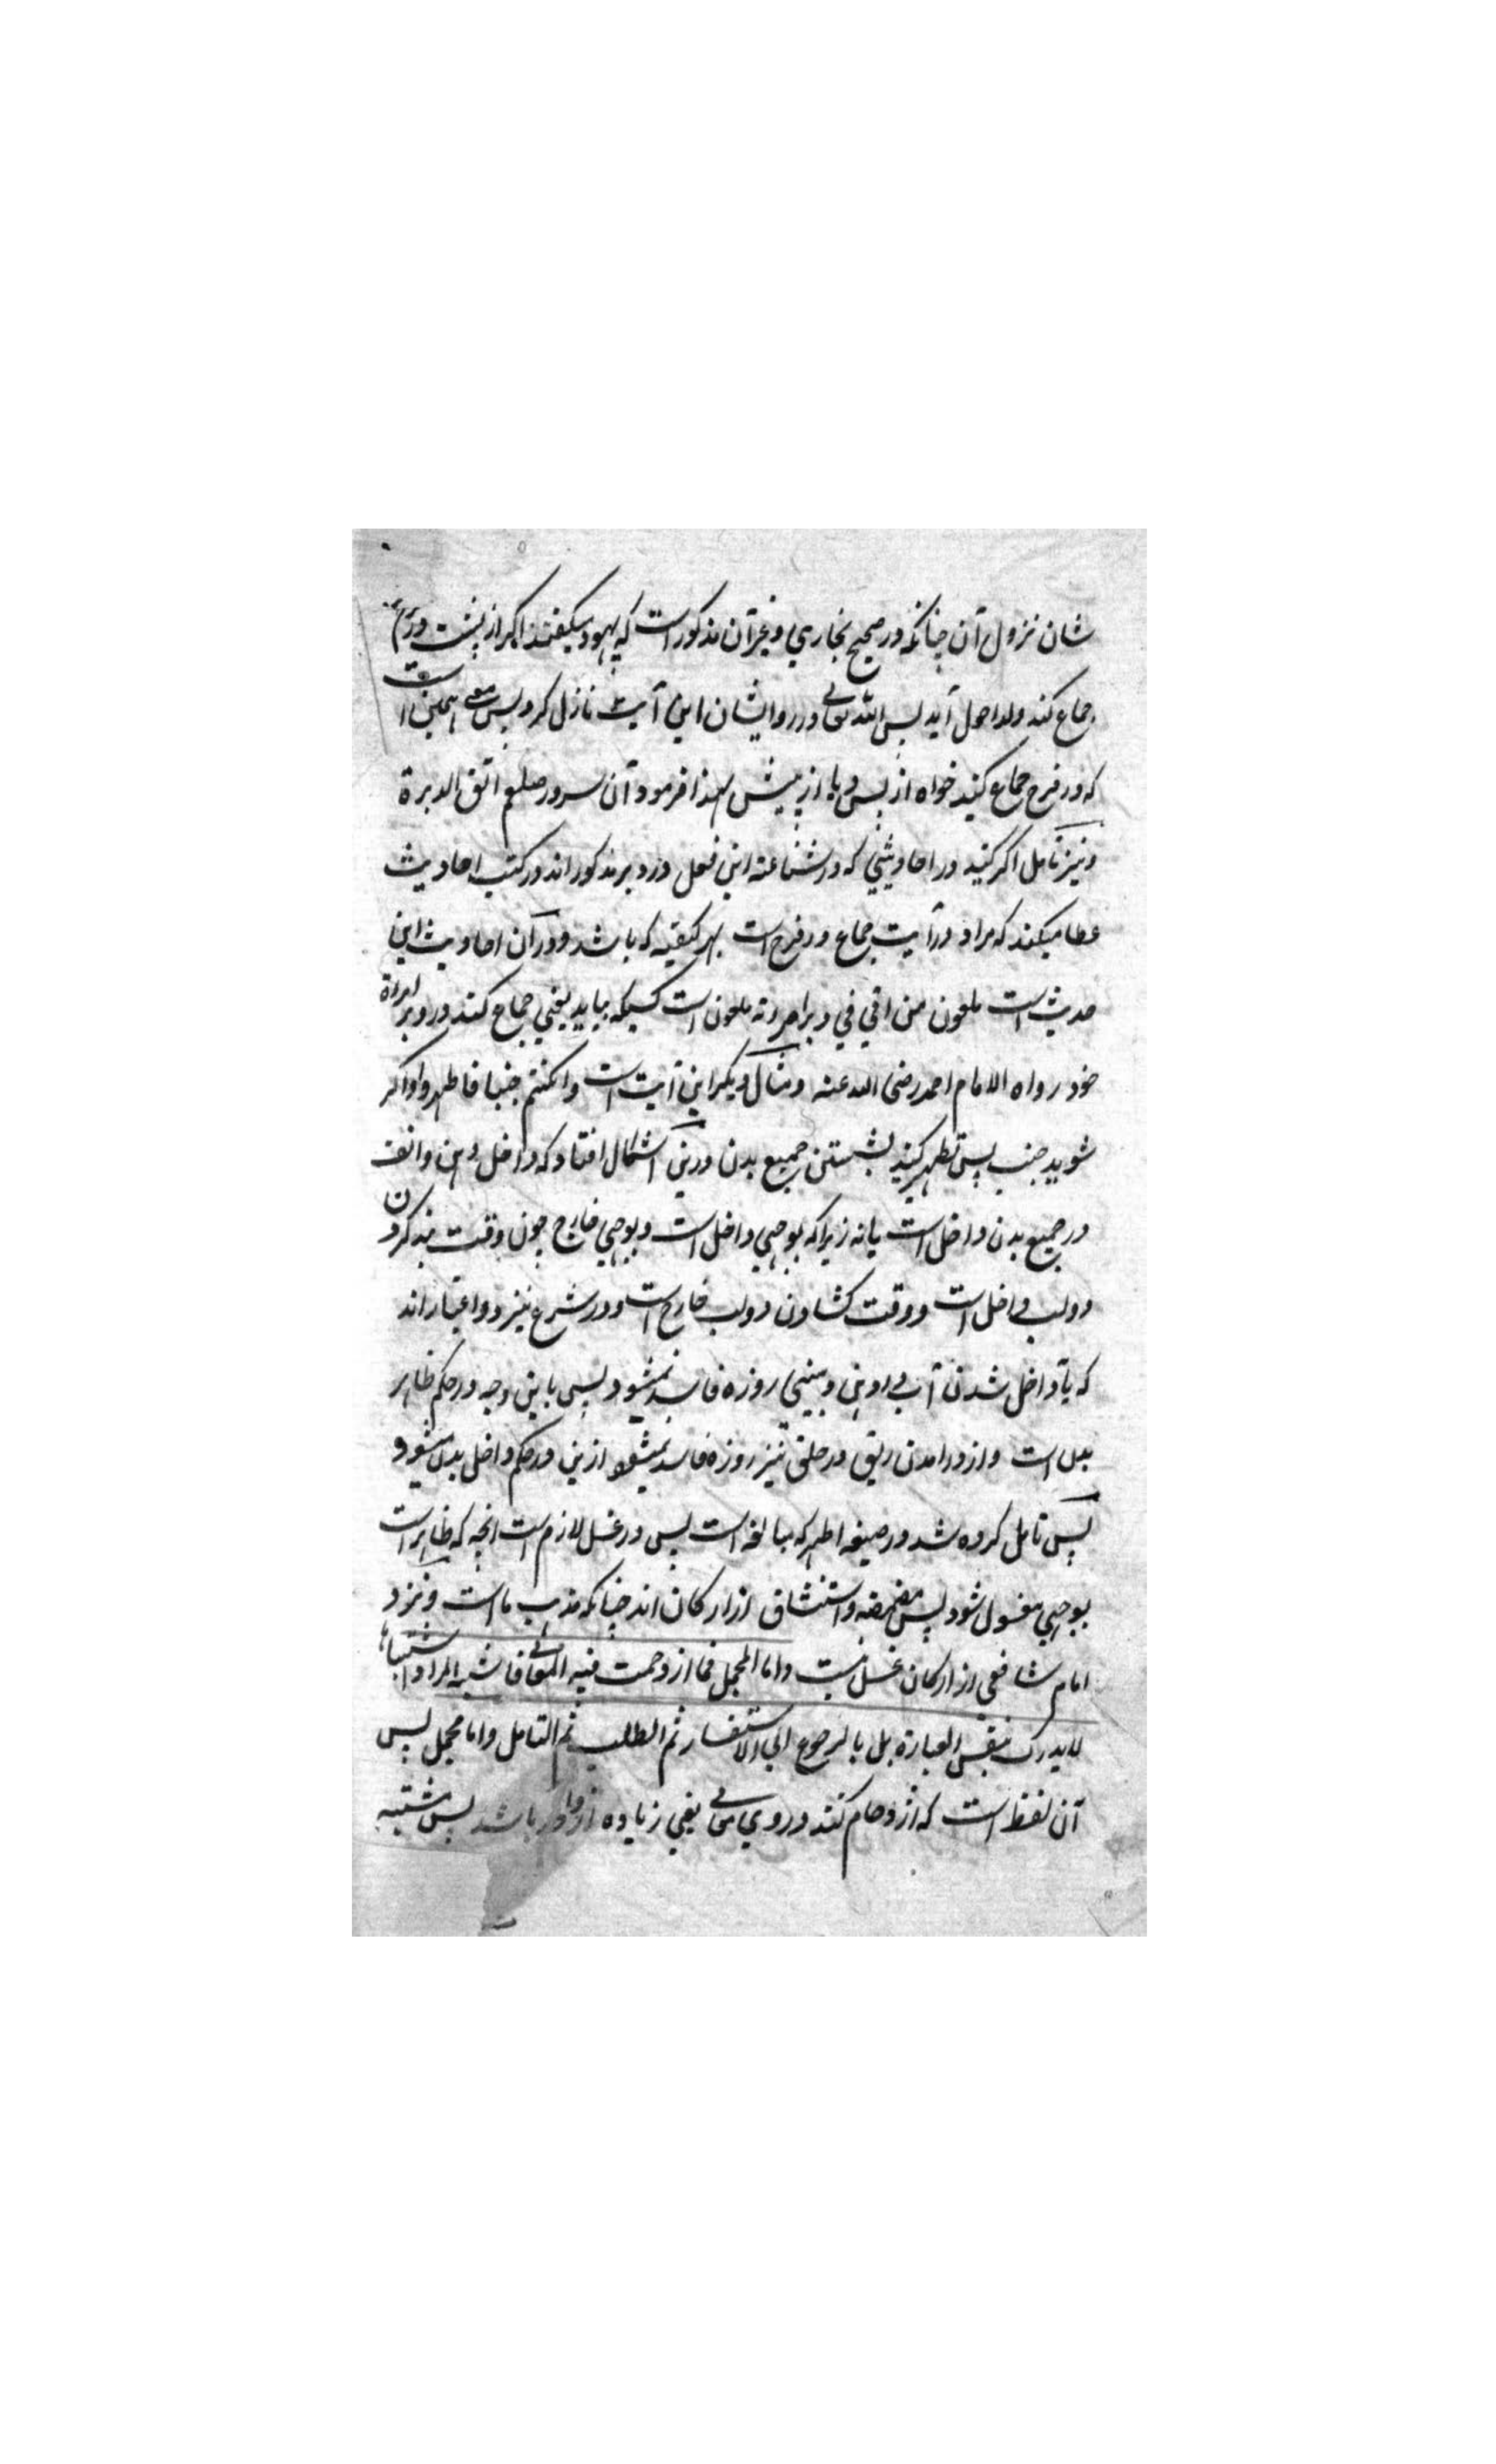 شان نزول آن چنانکه در صحیح بخاری و غیر آن مذکور است که یهود میگفتند اگر از پشت در فرج
جماع کنند ولد احول آید پس الله تعالی در رد ایشان این آیت نازل کرد پس معنی همین است
که در فرج جماع کنید خواه از پس یا از پیش لهذا فرمود آن سرور صلعم اتق الدبرة
و نیز تامل اگر کنید در احادیثی که در شناعته این فعل در دبر مذکور اند در کتب احادیث
عطا میکند که مراد در آیت جماع در فرج است بهر کیفیه که باشد و در آن احادیث این
حدیث است ملعون من اتی فی دبر امرءته ملعون است کسیکه بیاید یعنی جماع کند در دبر امرءة
خود رواه الامام احمد رضی الله عنه و مثال دیگر این آیت است و ان کنتم جنبا فاطهروا و اگر
شوید جنب پس تطهر کنید بشستن جمیع بدن درین اشکال افتاد که داخل دهن و انف
در جمیع بدن داخل است یا نه زیرا که بوجهی داخل است و بوجهی خارج چون وقت بند کردن
دو لب داخل است و وقت کشادن دو لب خارج است و در شرع نیز دو اعتبار اند
که باداخل شدن آب در دهن و بینی روزه فاسد نمیشود پس باین وجه در حکم ظاهر
بدن است و از در امدن ریق در حلق نیز روزه فاسد نمیشود ازین در حکم داخل بدن میشود
پس تامل کرده شد در صیغه اطهر که مبالغه است پس در غسل لازم است انچه که ظاهر است
بوجهی مغسول شود پس مضمضه و استنشاق از ارکان اند چنانکه مذهب ما است و نزد
امام شافعی از ارکان غسل نیست و اما المجمل فما ازدحمت فیه المعانی فاشتبه المراد اشتباها
لا یدرک بنفس العبارة بل بالرجوع الی الاستفسار ثم الطلب ثم التامل و اما مجمل پس
آن لفظ است که ازدحام کنند در وی معانی یعنی زیاده از باشد پس مشتبه